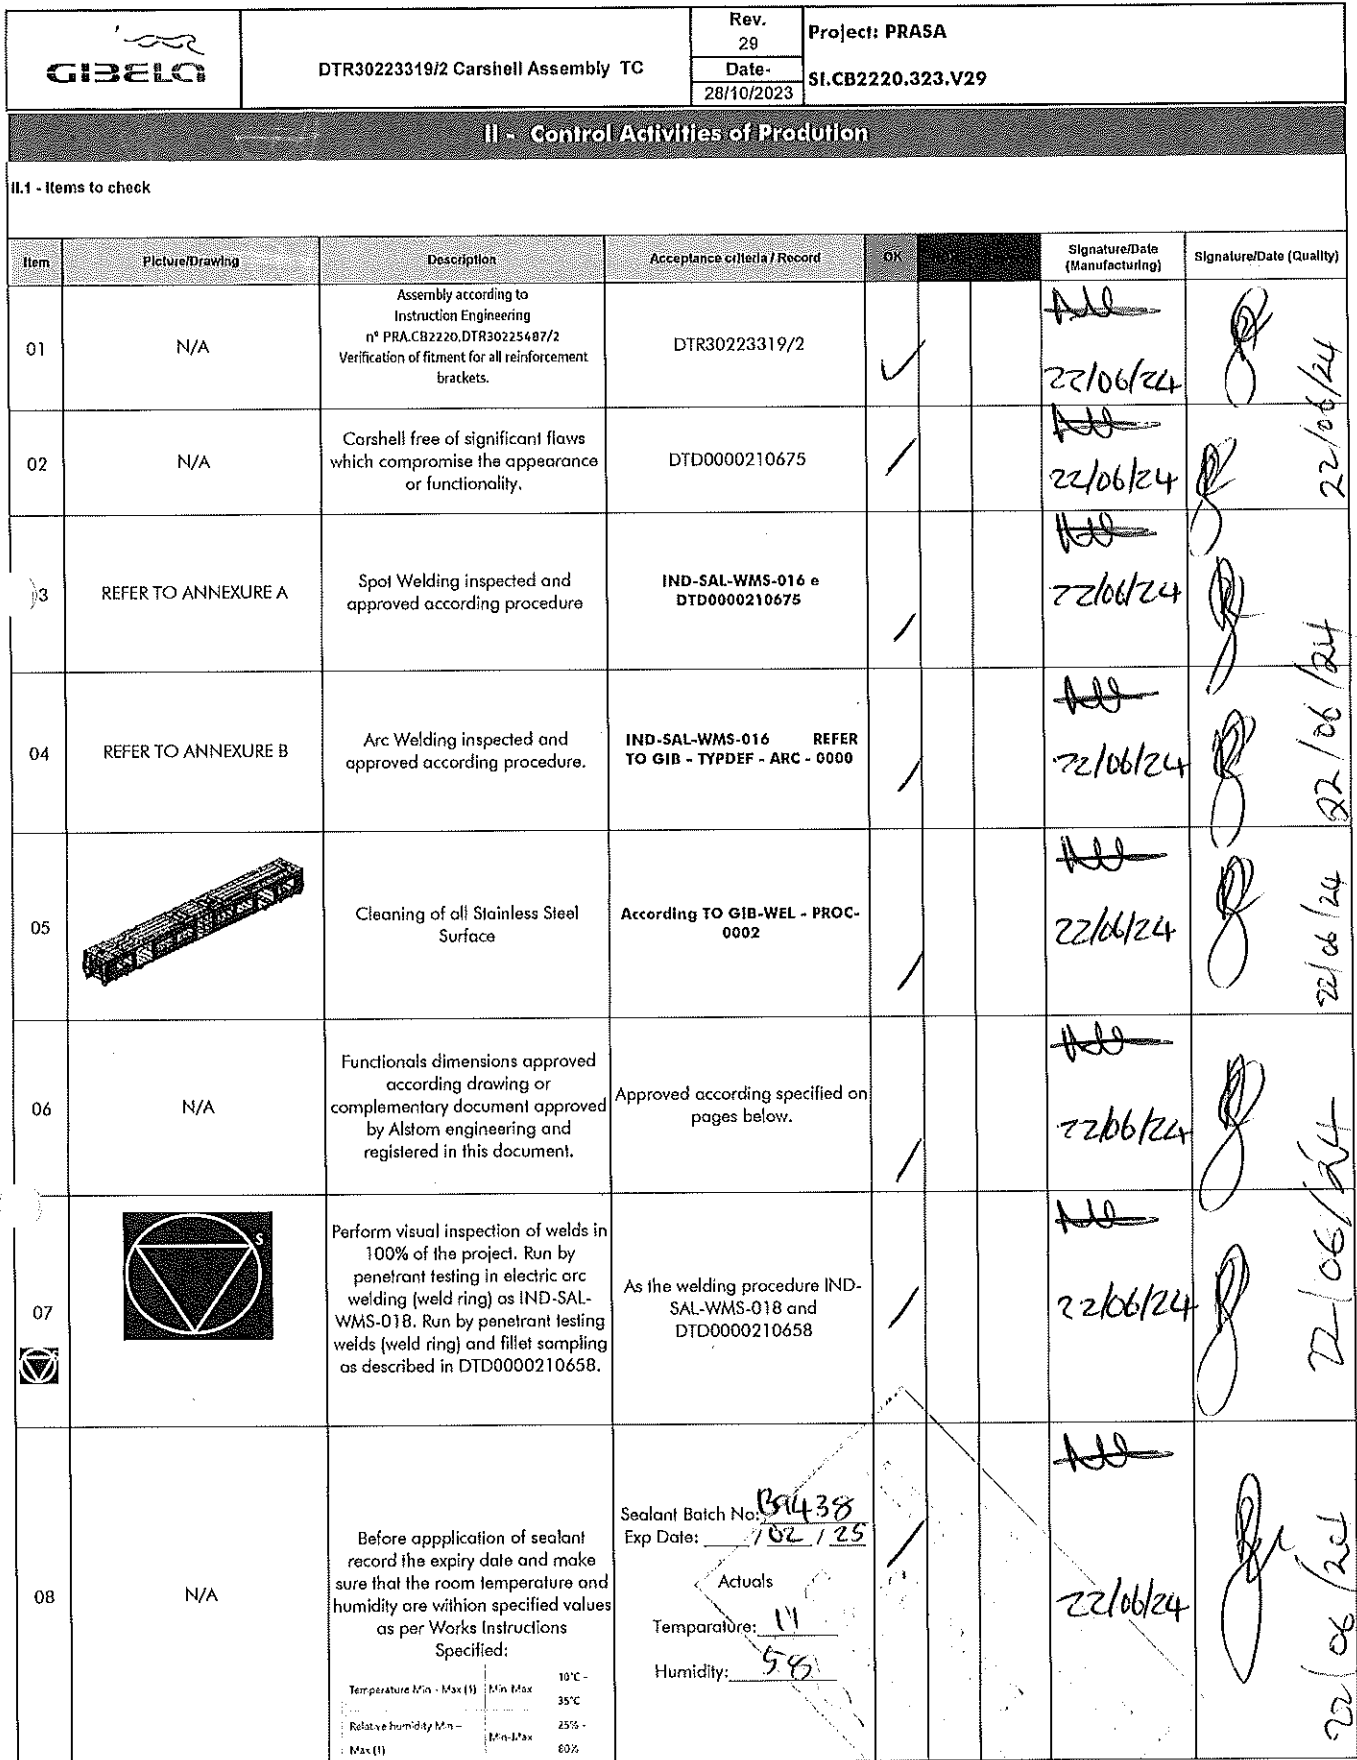 GIBELA
DTR30223319/2 Carshell Assembly TC
Rev.
29
Date-
28/10/2023
Project: PRASA
SI.CB2220.323.V29
II - Control Activities of Prodution
II.1 - Items to check
Item
Picture/Drawing
Description
Acceptance criteria / Record
OK
Signature/Date
(Manufacturing)
Signature/Date (Quality)
01
N/A
Assembly according to
Instruction Engineering
nº PRA.CB2220.DTR30225487/2
Verification of fitment for all reinforcement
brackets.
DTR30223319/2
22/06/24
22/06/24
02
N/A
Carshell free of significant flaws
which compromise the appearance
or functionality.
DTD0000210675
22/06/24
3
REFER TO ANNEXURE A
Spot Welding inspected and
approved according procedure
IND-SAL-WMS-016 e
DTD0000210675
22/06/24
22/06/24
04
REFER TO ANNEXURE B
Arc Welding inspected and
approved according procedure.
IND-SAL-WMS-016 REFER
TO GIB - TYPDEF - ARC - 0000
22/06/24
05
Cleaning of all Stainless Steel
Surface
According TO GIB-WEL - PROC-
0002
22/06/24
22/06/24
06
N/A
Functionals dimensions approved
according drawing or
complementary document approved
by Alstom engineering and
registered in this document.
Approved according specified on
pages below.
22/06/24
22/06/24
07
S
Perform visual inspection of welds in
100% of the project. Run by
penetrant testing in electric arc
welding (weld ring) as IND-SAL-
WMS-018. Run by penetrant testing
welds (weld ring) and fillet sampling
as described in DTD0000210658.
As the welding procedure IND-
SAL-WMS-018 and
DTD0000210658
22/06/24
08
N/A
Before appplication of sealant
record the expiry date and make
sure that the room temperature and
humidity are withion specified values
as per Works Instructions
Specified:
Temperature Min - Max (1) Min Max 10°C -
35°C
Relative humidity Min - Min-Max 25% -
Max (1) 80%
Sealant Batch No: B9438
Exp Date: / 02 / 25
Actuals
Temparature: 11
Humidity: 58
22/06/24
22/06/24